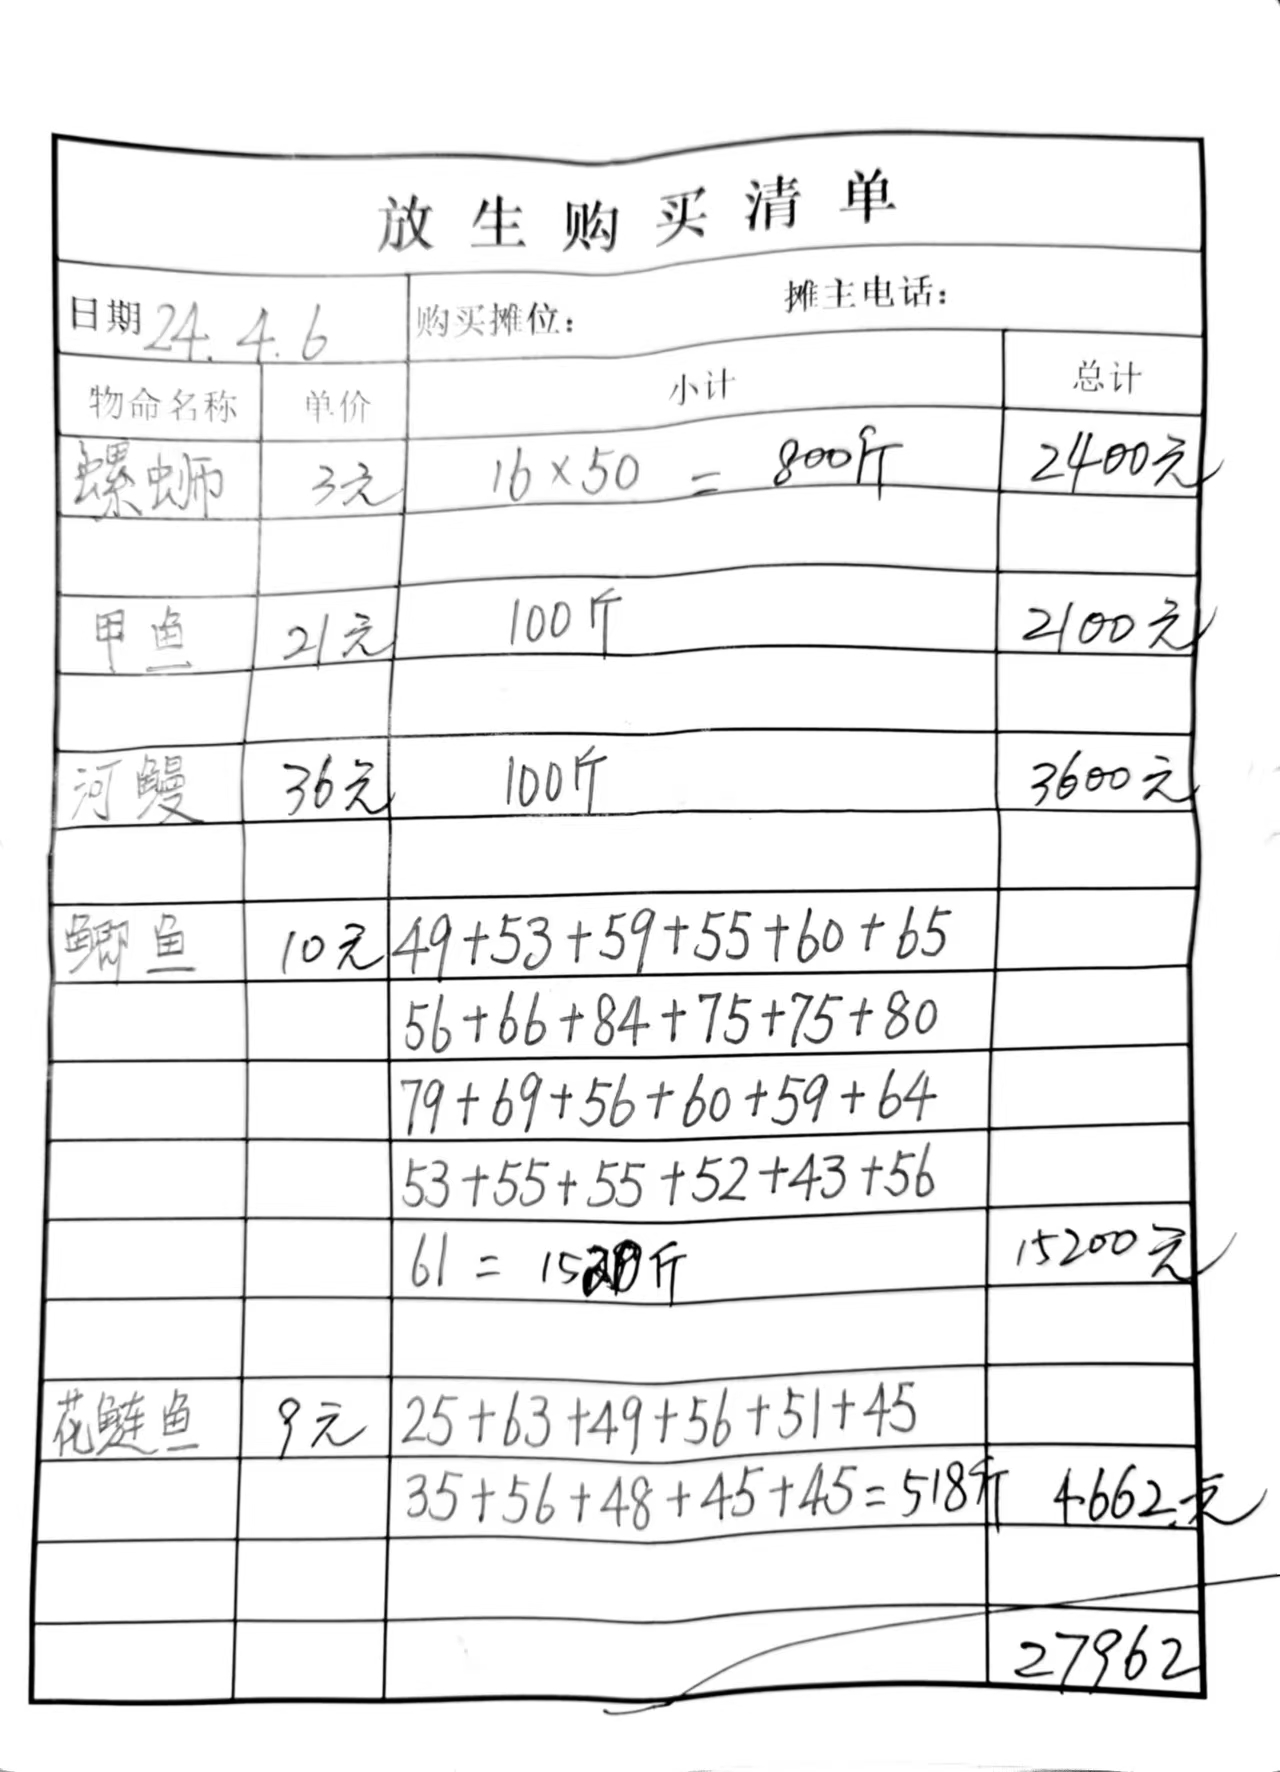 放生购买清单
日期 24.4.6 购买摊位： 摊主电话：
物命名称 单价 小计 总计
螺蛳 3元 16×50 = 800斤 2400元
甲鱼 21元 100斤 2100元
河鳗 36元 100斤 3600元
鲫鱼 10元 49+53+59+55+60+65
56+66+84+75+75+80
79+69+56+60+59+64
53+55+55+52+43+56
61 = 斤 15200元
花鲢鱼 9元 25+63+49+56+51+45
35+56+48+45+45=518斤 4662元
27962